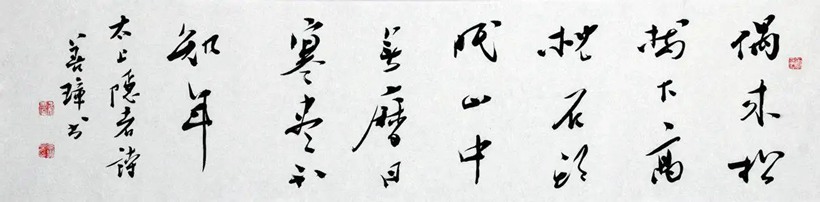 偶来松
樹下高
枕石頭
眠山中
無曆日
寒盡不
知年
太上隱者詩
善璋书